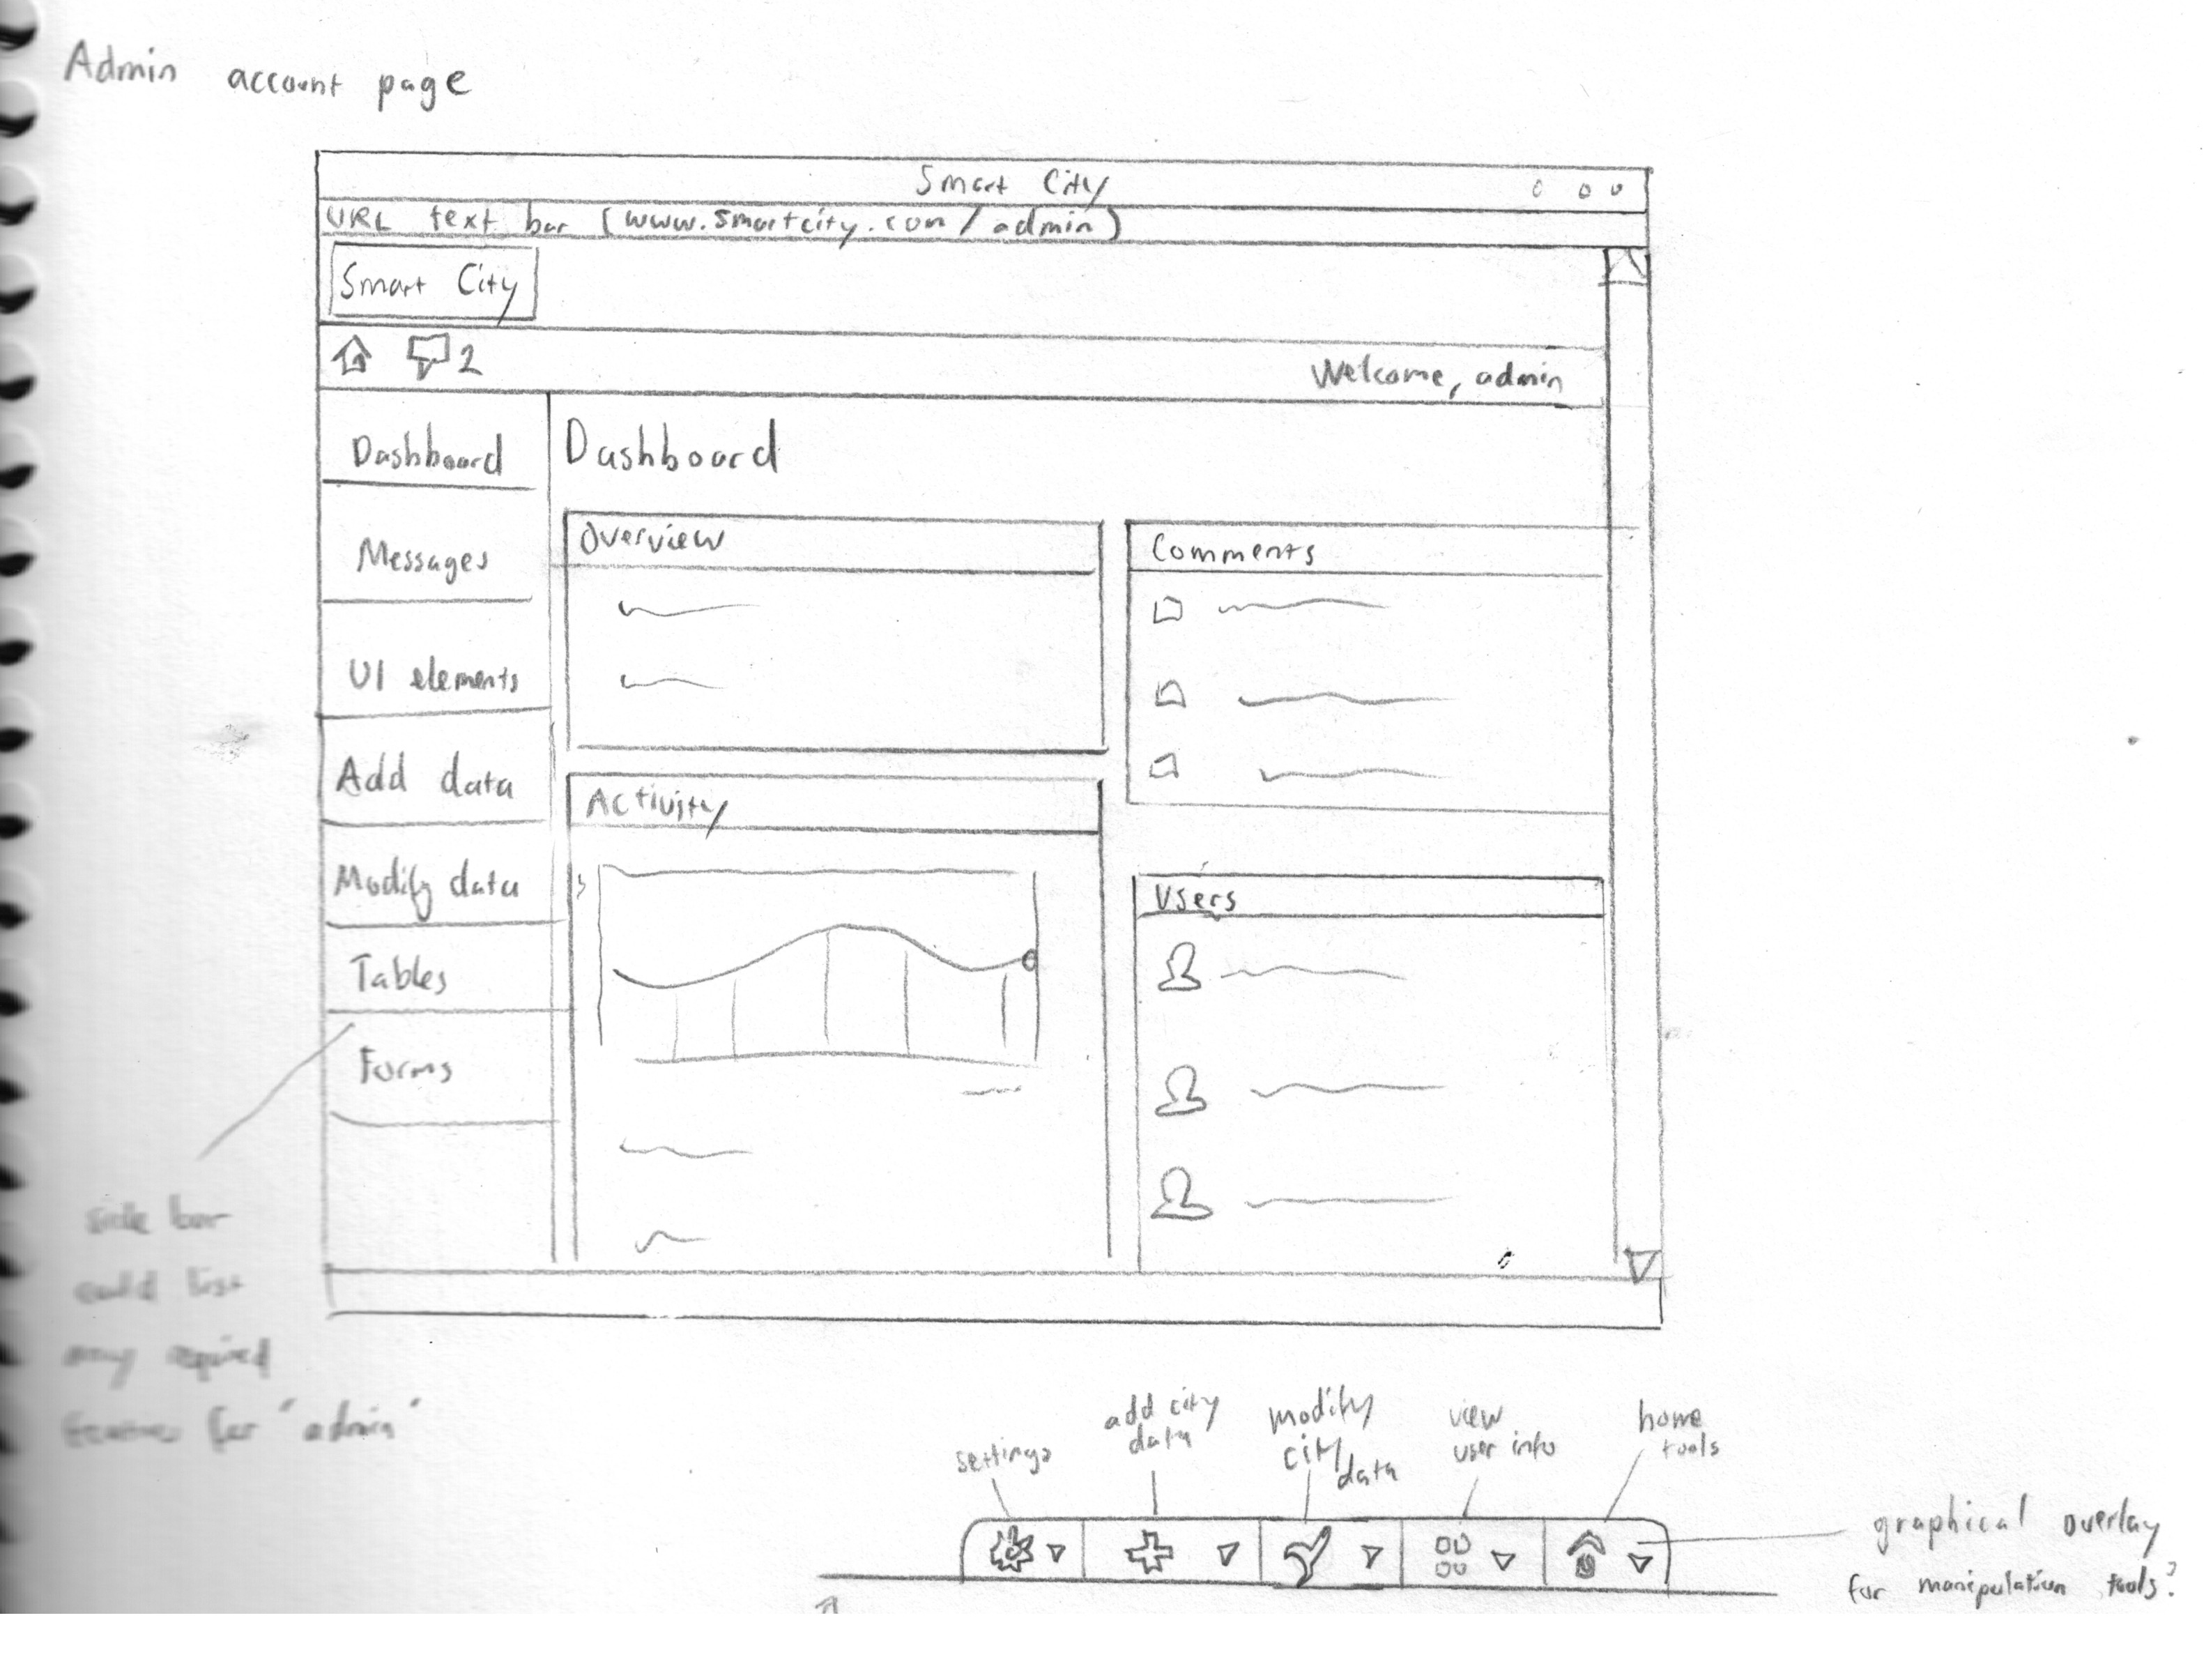 Admin account page
Smart City
URL text bar (www.smartcity.com/admin)
Smart City
2
Welcome, admin
Dashboard
Messages
UI elements
Add data
Modify data
Tables
Forms
Dashboard
Overview
Comments
Activity
Users
side bar
could list
many required
features for "admin"
settings
add city
data
modify
city
data
view
user info
home
tools
graphical overlay
for manipulation tools?